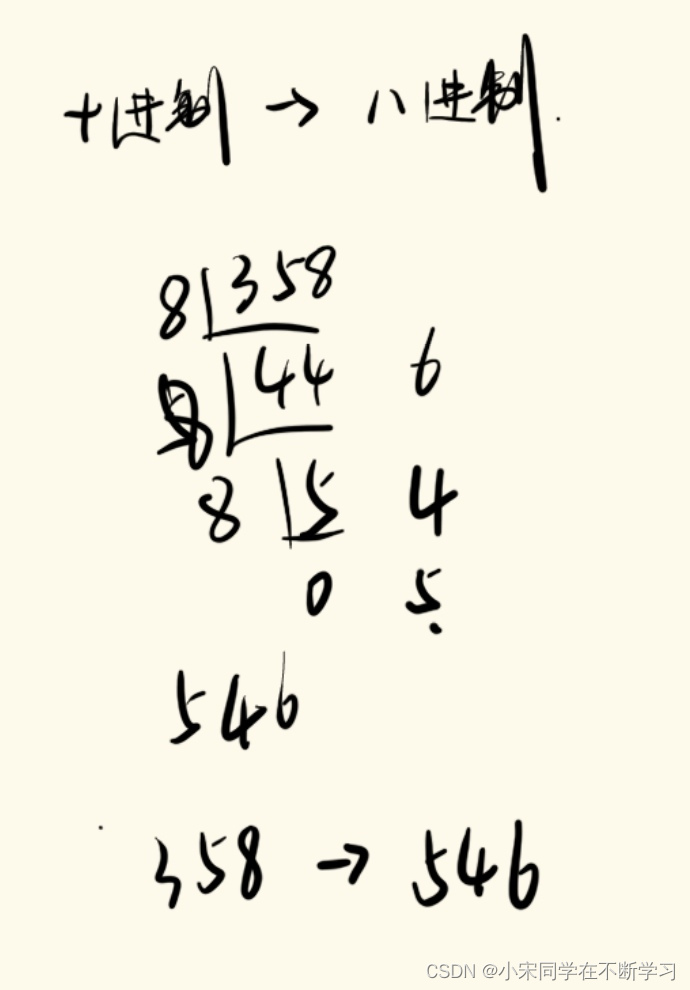 十进制 → 八进制.
8 358
8 44 6
8 5 4
0 5
546
358 → 546
CSDN @小宋同学在不断学习